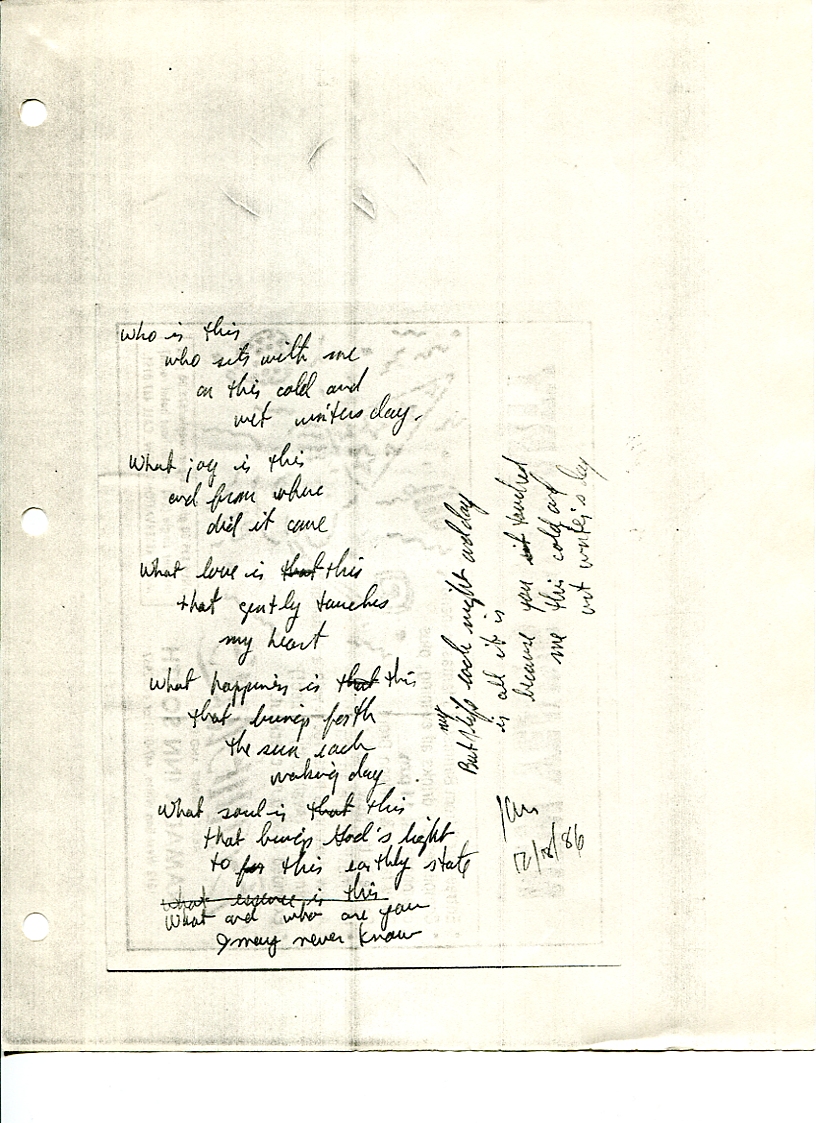 Who is this
who sits with me
on this cold and
wet winters day.
What joy is this
and from where
did it come
What love is that this
that gently touches
my heart
What happiness is that this
that brings forth
the sun each
waking day
What soul is that this
that brings God's light
to for this earthly state
what essence is this
What and who are you
I may never know
But my life each night and day
is all it is
because you touched
me this cold and
wet winter's day
12/18/86